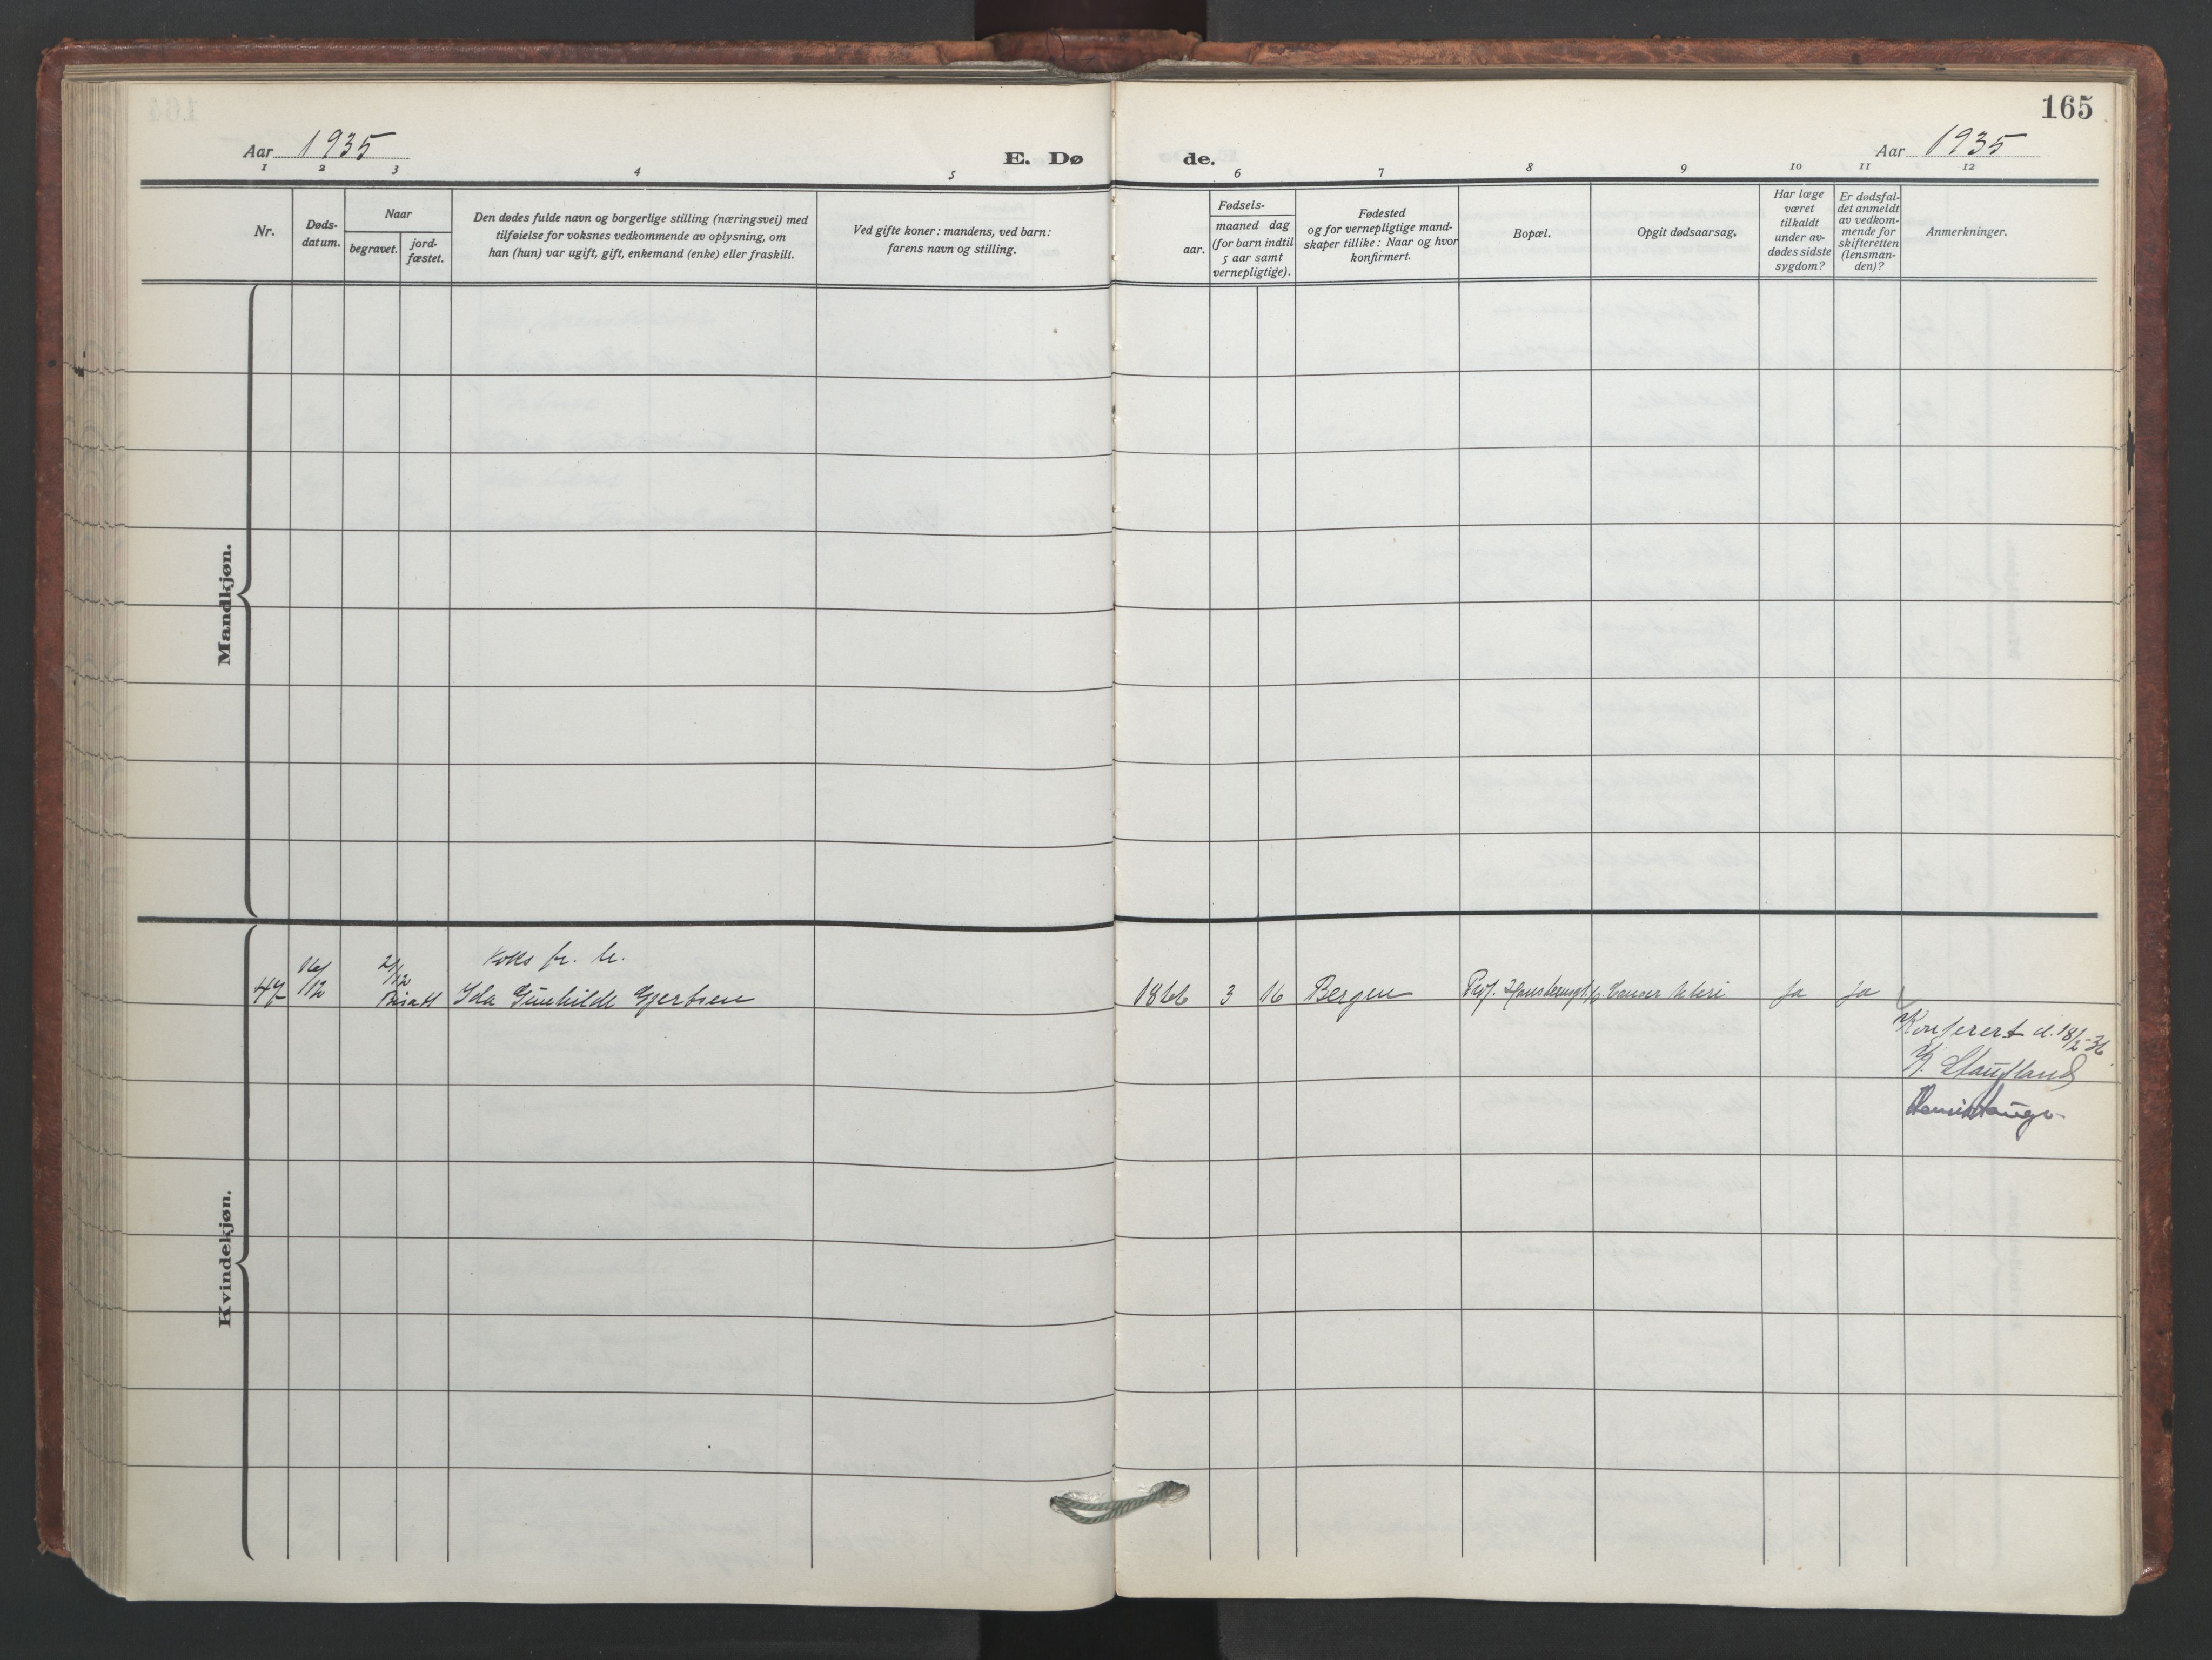 165
Aar 1935
E. Dø
de.
Aar 1935
1 2 3 4 5
6 7 8 9 10 11 12
Nr.
Døds-
datum.
Naar
begravet.
jord-
fæstet.
Den dødes fulde navn og borgerlige stilling (næringsvei) med
tilføielse for voksnes vedkommende av oplysning, om
han (hun) var ugift, gift, enkemand (enke) eller fraskilt.
Ved gifte koner: mandens, ved barn:
farens navn og stilling.
Fødsels-
aar.
maaned dag
(for barn indtil
5 aar samt
vernepligtige).
Fødested
og for vernepligtige mand-
skaper tillike: Naar og hvor
konfirmert.
Bopæl.
Opgit dødsaarsag.
Har læge
været
tilkaldt
under av-
dødes sidste
sygdom?
Er dødsfal-
det anmeldt
av vedkom-
mende for
skifteretten
(lensman-
den)?
Anmerkninger.
Mandkjøn.
Kvindekjøn.
fr.
47 16/12 21/12 Ida Gunhilde Gjertsen 1866 3 16 Bergen Prof. Cancer Uteri ja ja
Konferert d. 18/2-36